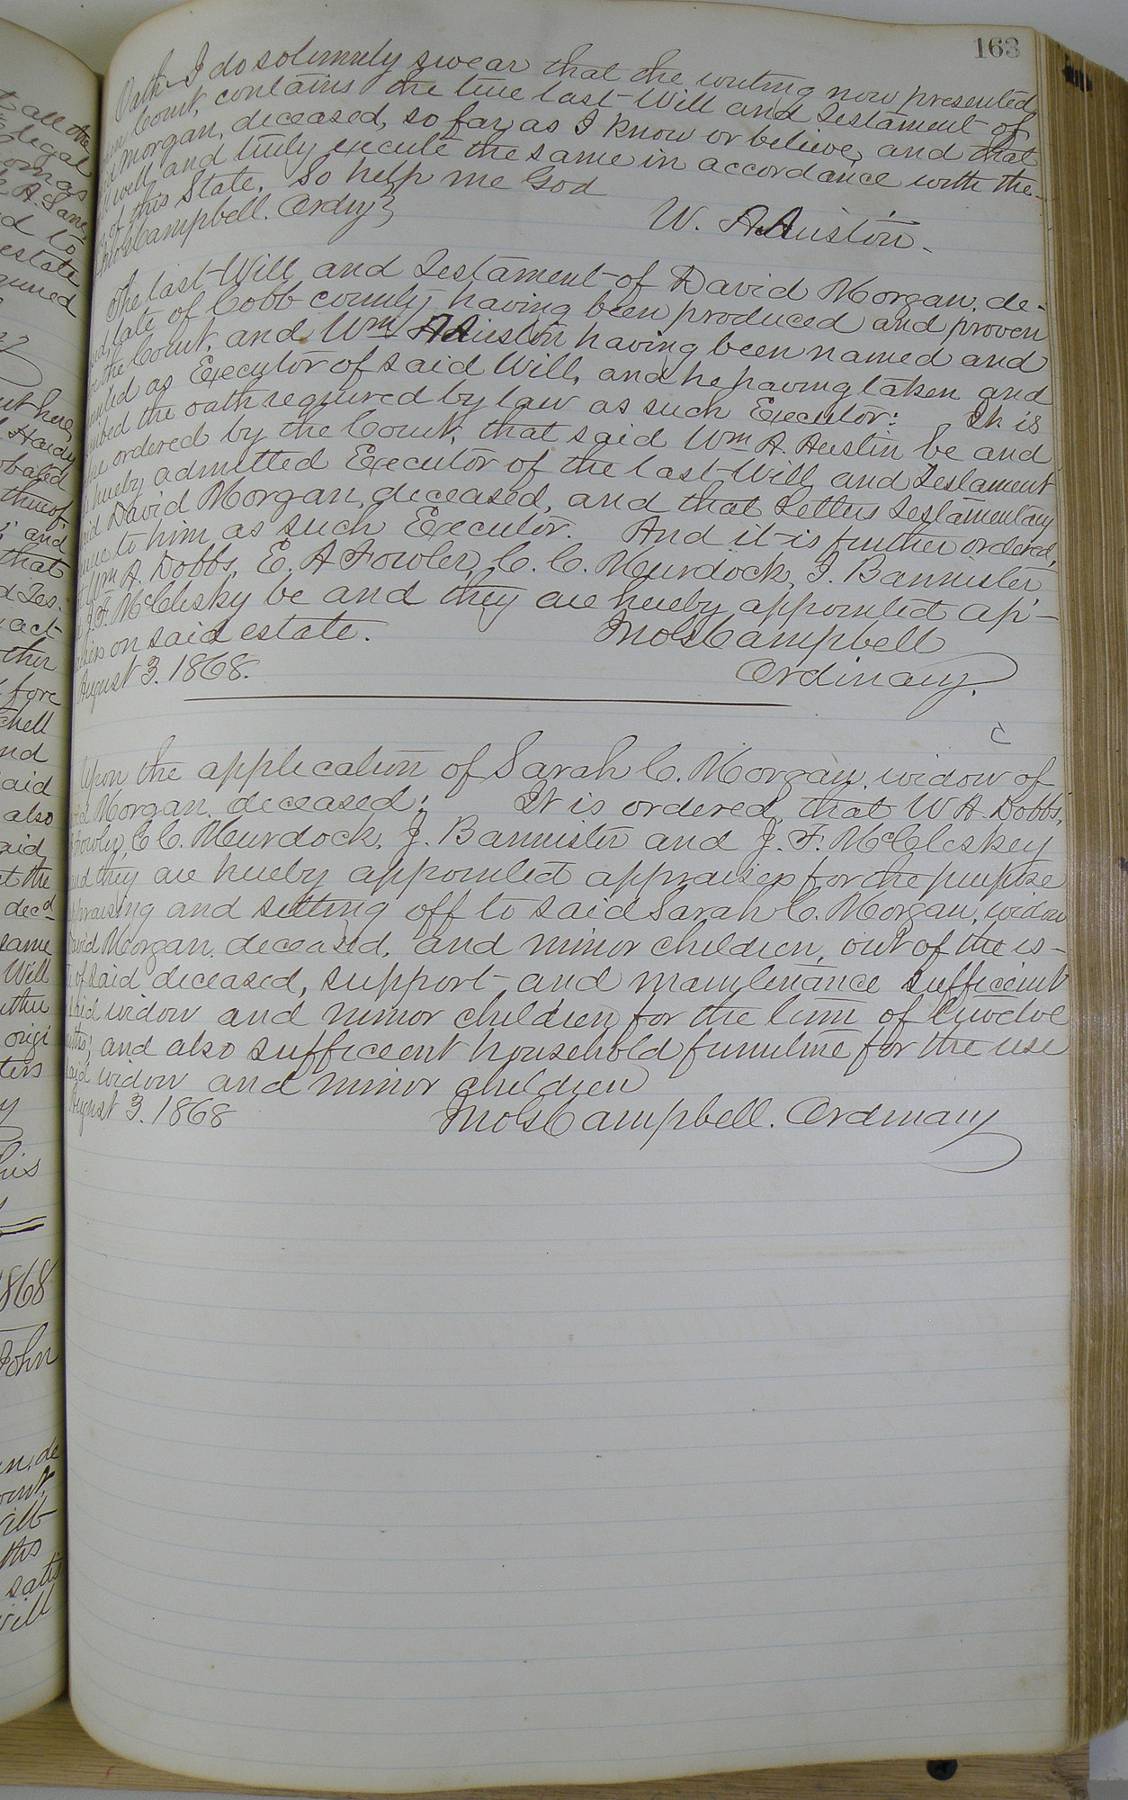 163
Oath I do solemnly swear that the writing now presented
in Court, contains the true last Will and Testament of
Morgan, deceased, so far as I know or believe, and that
well and truly execute the same in accordance with the
of this State. So help me God
Campbell. Ordny
W. A Austin
The last Will and Testament of David Morgan, de-
late of Cobb county having been produced and proven
the Court, and Wm A Austin having been named and
as Executor of said Will, and he having taken and
the oath required by law as such Executor: It is
ordered by the Court, that said Wm A. Austin be and
hereby admitted Executor of the last Will and Testament
David Morgan, deceased, and that Letters Testamentary
to him as such Executor. And it is further ordered,
Wm A. Dobbs, E. A Fowler, C. C. Murdock, J. Bannister,
J. F. McClesky be and they are hereby appointed ap-
on said estate. Jno G Campbell
August 3. 1868. Ordinary.
Upon the application of Sarah C. Morgan, widow of
Morgan, deceased; It is ordered, that W A Dobbs,
Fowler, C C. Murdock, J. Bannister and J. F. McCleskey
and they are hereby appointed appraisers for the purpose
praising and setting off to said Sarah C. Morgan, widow
David Morgan, deceased, and minor children, out of the es-
of said deceased, support and maintenance sufficient
said widow and minor children, for the time of twelve
and also sufficient household furniture for the use
said widow and minor children
August 3. 1868 Jno G Campbell. Ordinary
all the
legal
estate
and
that
act
fore
and
said
also
said
the
decd
same
Will
origi
his
1868
John
de
this
will